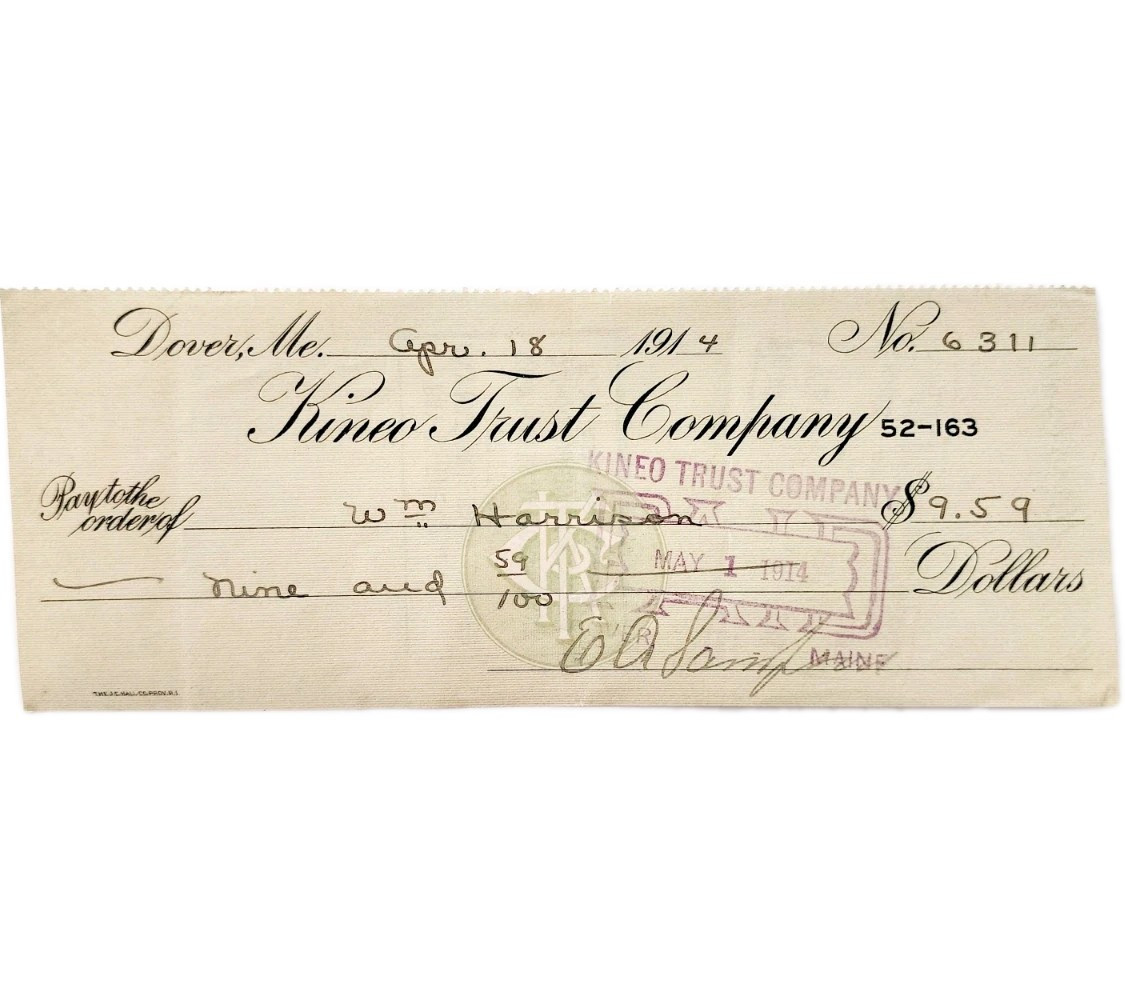 Dover, Me. Apr. 18 1914 No. 6311
Kineo Trust Company 52-163
KINEO TRUST COMPANY
Pay to the
order of Wm Harrison $9.59
PAID
MAY 1 1914
Nine and 59/100 Dollars
DOVER
MAINE
E A
THE J.C. HALL CO. PROV. R.I.